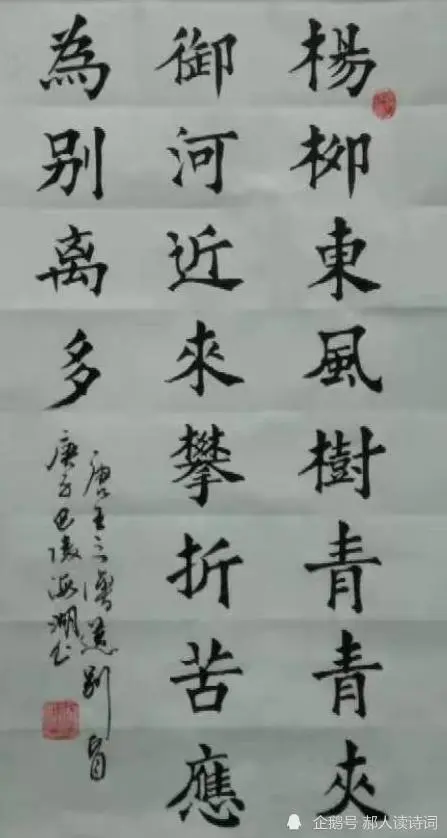 楊柳東風樹青青夾
御河近來攀折苦應
為别离多
唐王之渙送别首
庚子巴陵海湖书
企鹅号 郝人读诗词